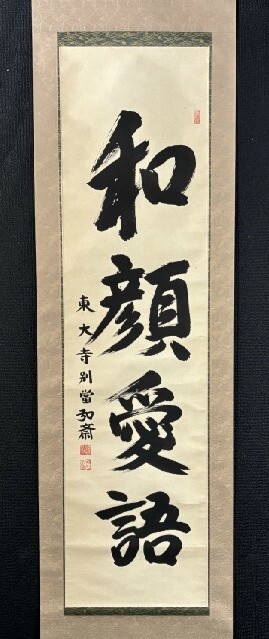 和顔愛語
東大寺別當和齋